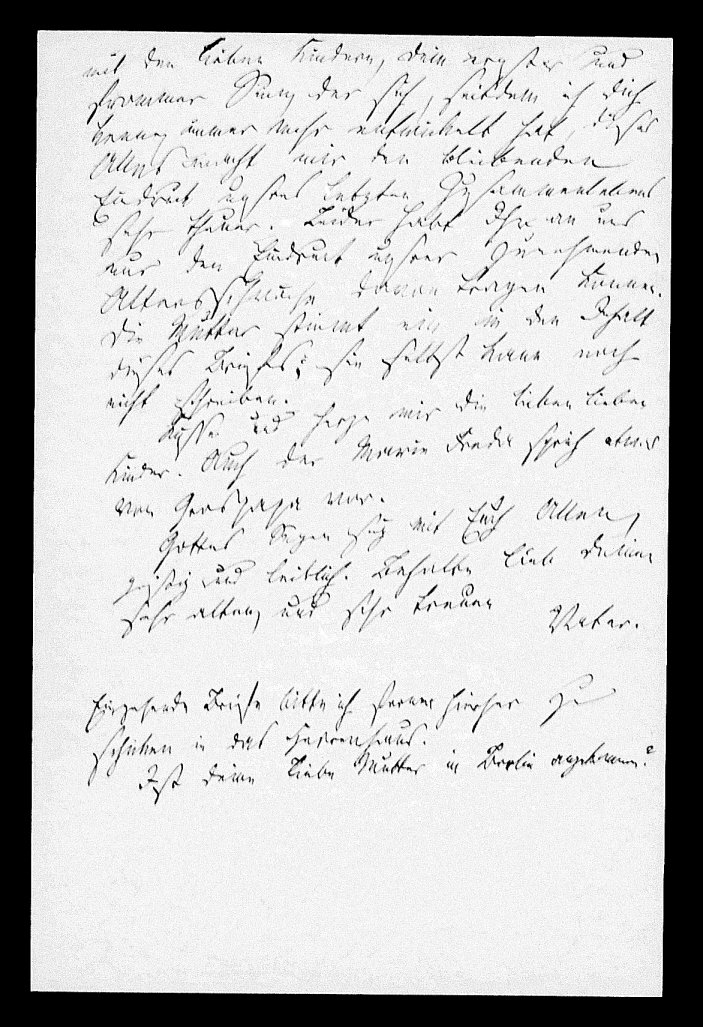 mit den lieben Kindern, Dein ernster und
frommer Sinn der sich, seitdem ich Dich
kenne, immer mehr entwickelt hat, dieses
Alles macht mir den bleibenden
Eindruck unsres letzten Zusammenlebens
sehr theuer. Leider habt Ihr an uns
nur den Eindruck unsrer zunehmenden
Altersschwäche davon tragen können.
Die Mutter stimmt ein in den Inhalt
dieses Briefes; sie selbst kann noch
nicht schreiben.
Küsse und herze mir die lieben lieben
Kinder. Auch der Marie Freda sprich etwas
von Grospapa vor.
Gottes Segen sey mit Euch Allen,
geistig und leiblich. Behalte lieb Deinen
sehr alten, und sehr treuen Vater.
Eingehende Briefe bitte ich ferner hierher zu
schicken in das Herrenhaus.
Ist Deine liebe Mutter in Berlin angekommen?